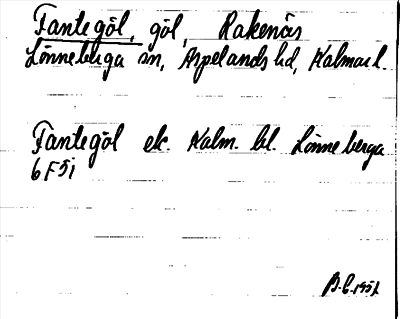 Fantegöl, göl, Rakenäs
Lönneberga sn, Aspelands hd, Kalmar l.
Fantegöl ek. Kalm. bl. Lönneberga
6F5i
B.E. 1951